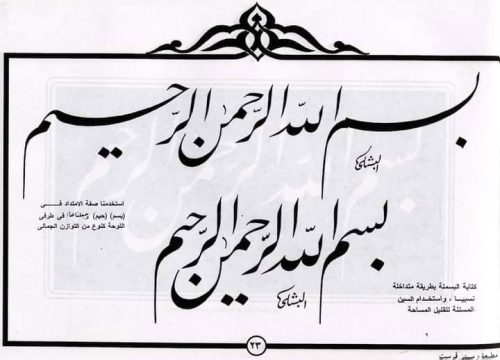 بسم الله الرحمن الرحيم
البشلى
استخدمنا صفة الامتداد فــى
(بسم) (حيم) فى طرفى
اللوحة كنوع من التوازن الجمالى
بسم الله الرحمن الرحيم
البشلى
كتابة البسملة بطريقة متداخلة
نسبيـا ، واستخـدام السين
المستلة لتقليل المساحة
٢٣